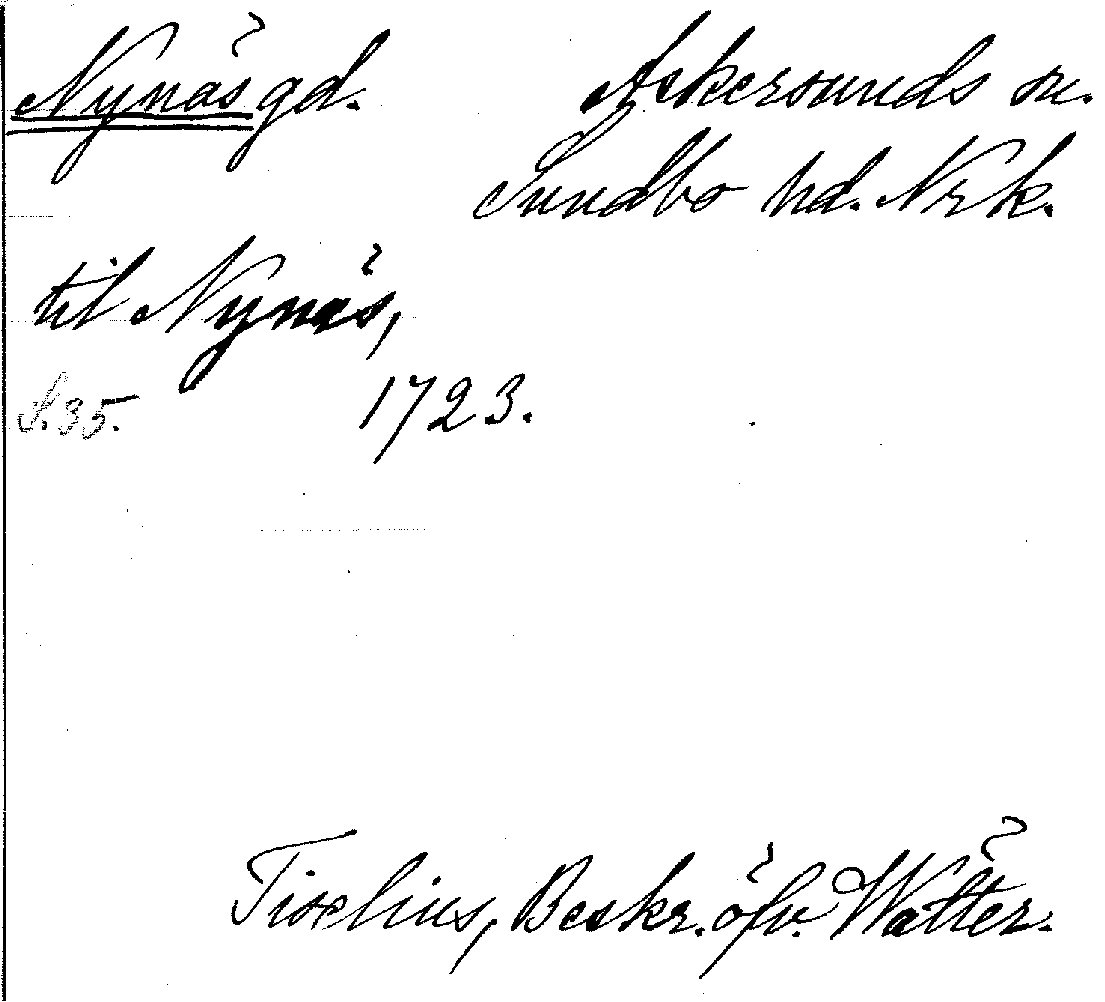 Nynäs gd. Askersunds sn.
Sundbo hd. Nrk.
til Nynäs,
S. 35. 1723.
Tiselius, Beskr. öfv. Wätter.